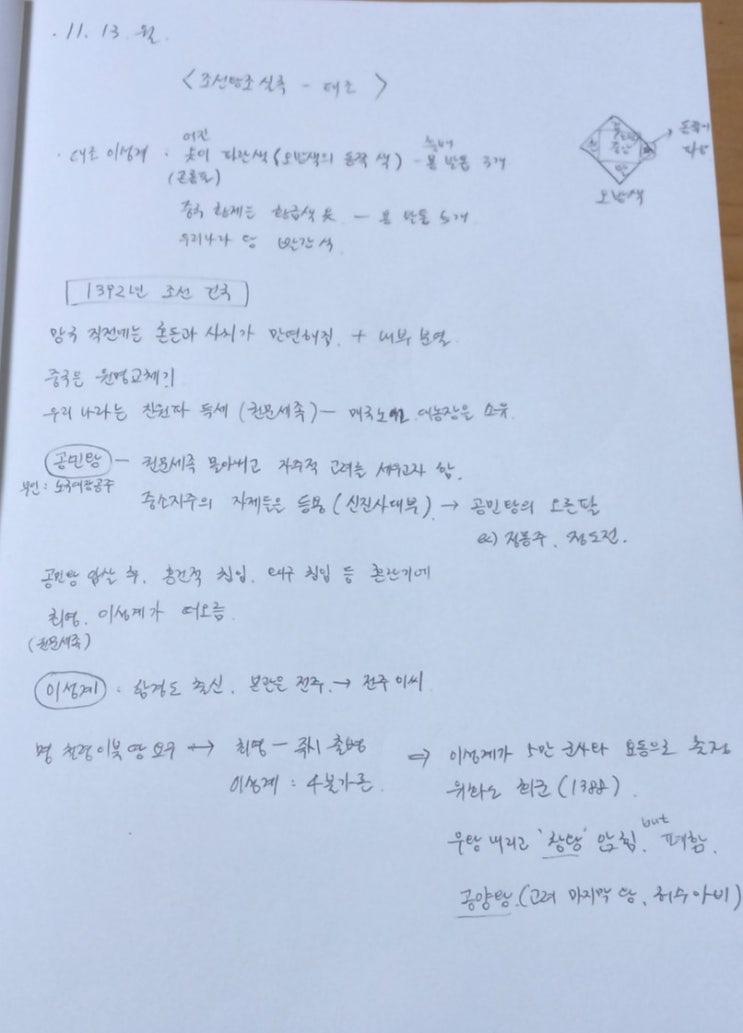 11. 13. 월.
<조선왕조실록 - 태조>
어진
태조 이성계 : 옷이 파란색 (오방색의 동쪽 색) - 용 발톱 3개
(곤룡포)
중국 황제는 황금색 옷 - 용 발톱 5개
우리나라 왕 빨간색
오방색
1392년 조선 건국
망국 직전에는 혼돈과 사치가 만연해짐. + 내부 분열
중국은 원명교체기
우리 나라는 친원파 득세 (권문세족) - 매국노 대농장을 소유.
공민왕 - 권문세족 몰아버고 자주적 고려를 세우고자 함.
부인 : 노국대장공주
중소지주의 자제들을 등용 (신진사대부) → 공민왕의 오른팔
ex) 정몽주, 정도전.
공민왕 암살 후, 홍건적 침입, 왜구 침입 등 혼란기에
최영, 이성계가 떠오름.
(권문세족)
이성계 : 함경도 출신, 본관은 전주. → 전주 이씨
명 철령이북 땅 요구 ↔ 최영 - 즉시 출병
이성계 : 4불가론
⇒ 이성계가 5만 군사와 요동으로 출정
위화도 회군 (1388).
but
우왕 내리고 '창왕' 앉힘. 폐함.
공양왕. (고려 마지막 왕, 허수아비)